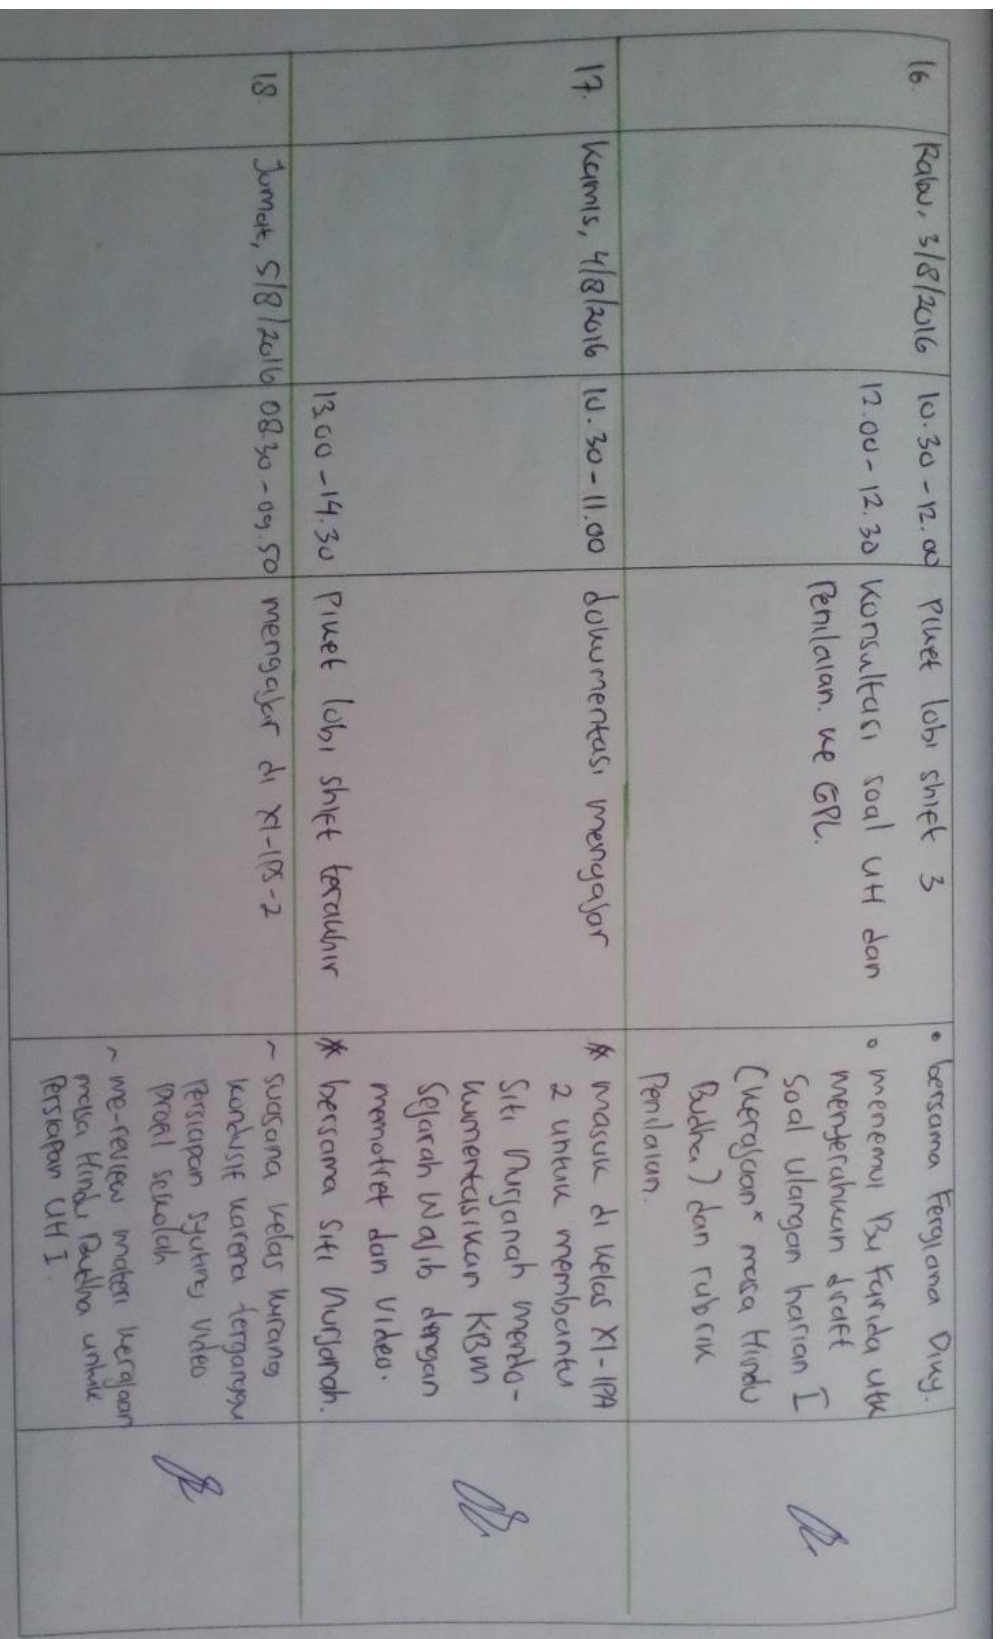 16. Rabu, 3/8/2016 10.30 - 12.00 Piket lobi shift 3 • bersama Fergiana Diky.
12.00 - 12.30 Konsultasi soal UH dan
Penilaian. ke GPL.
° menemui Bu Farida utk
menyerahkan draft
Soal ulangan harian I
(kerajaan" masa Hindu
Budha) dan rubrik
Penilaian.
17. Kamis, 4/8/2016 10.30 - 11.00 dokumentasi mengajar
* masuk di kelas XI-IPA
2 untuk membantu
Siti Nurjanah mendo-
kumentasikan KBM
Sejarah Wajib dengan
memotret dan video.
13.00 - 14.30 Piket lobi shift terakhir * bersama Siti Nurjanah.
18. Jumat, 5/8/2016 08.30 - 09.50 mengajar di XI-IPS-2
~ suasana kelas kurang
kondusif karena terganggu
Persiapan syuting video
profil sekolah
~ me-review materi kerajaan
masa Hindu Budha untuk
Persiapan UH I.